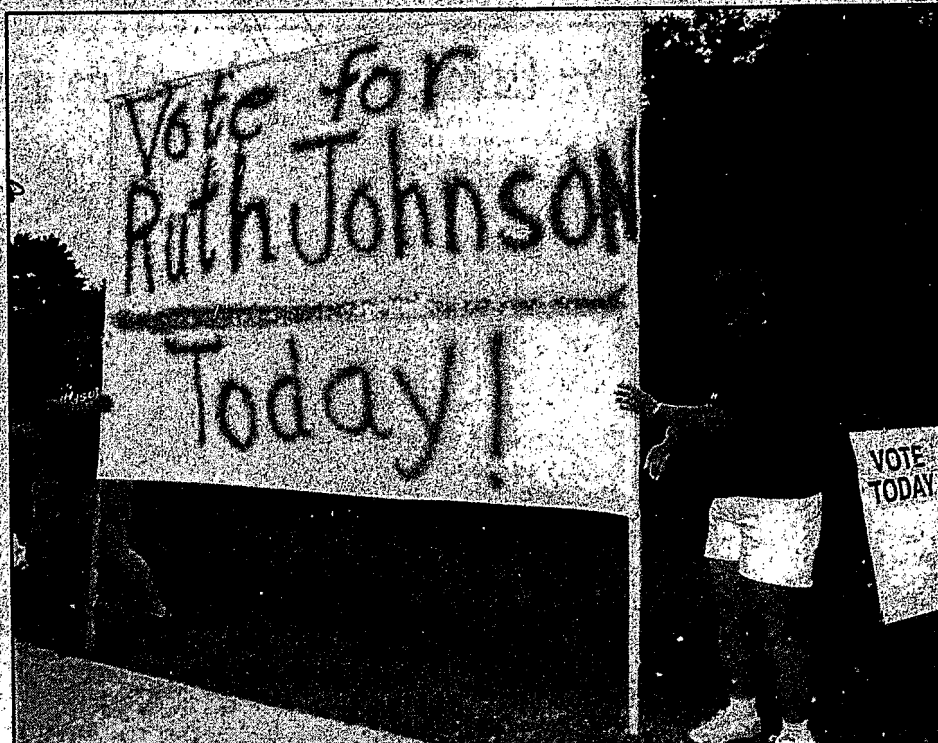 Vote for
Ruth JohnsoN
Today!
VOTE
TODAY